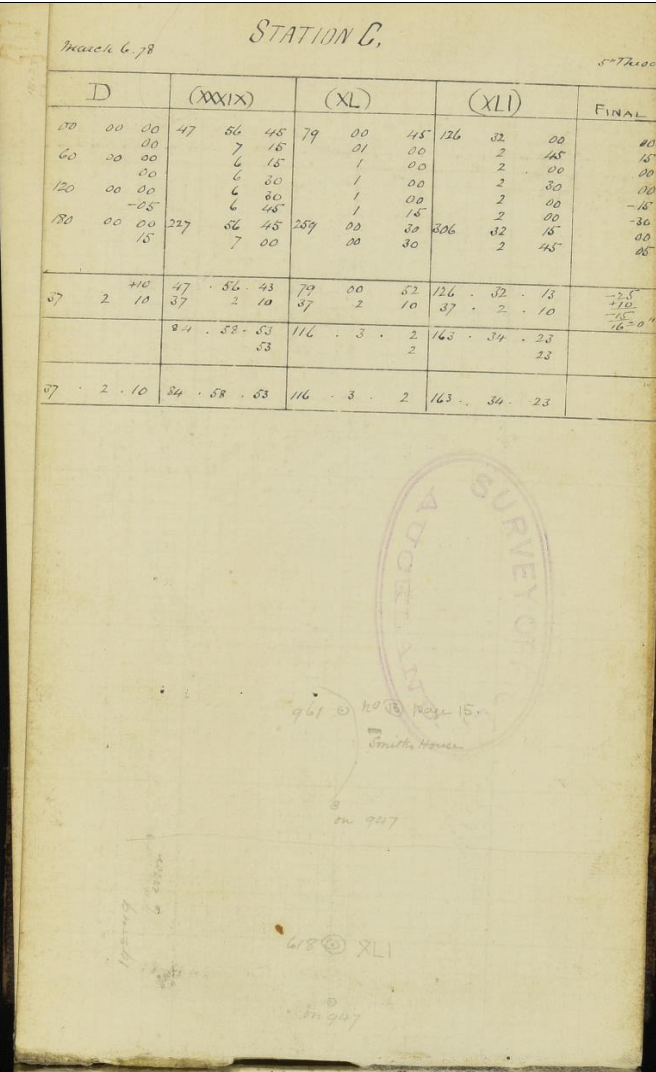 STATION C.
March 6. 78
D (XXXIX) (XL) (XLI) FINAL
00 00 00 47 56 45 79 00 45 126 32 00 00
00 7 15 01 00 2 45 15
60 00 00 6 15 1 00 2 00 00
00 6 30 1 00 2 30 00
120 00 00 6 30 1 00 2 00 -15
-05 6 45 1 15 2 00 -30
180 00 00 227 56 45 259 00 30 306 32 15 00
15 7 00 00 30 2 45 05
+10 47 . 56 . 43 79 00 52 126 . 32 . 13 -25
37 2 10 37 2 10 37 2 10 37 . 2 . 10 +10
-15
84 . 58 . 53 116 . 3 . 2 163 . 34 . 23
53 2 23
37 . 2 . 10 84 . 58 . 53 116 . 3 . 2 163 . 34 . 23
SURVEY OF
961 no 13 page 15.
Smiths House
on 947
618 XLI
on 947